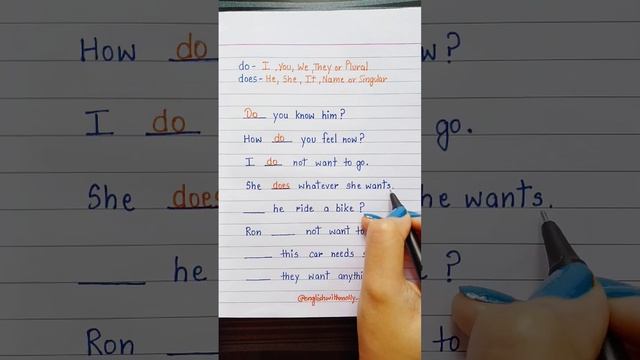 do - I, You, We, They or Plural
does - He, She, It, Name or Singular
Do you know him?
How do you feel now?
I do not want to go.
She does whatever she wants.
____ he ride a bike?
Ron ____ not want to
____ this car needs
____ they want anythi
@englishwithmolly